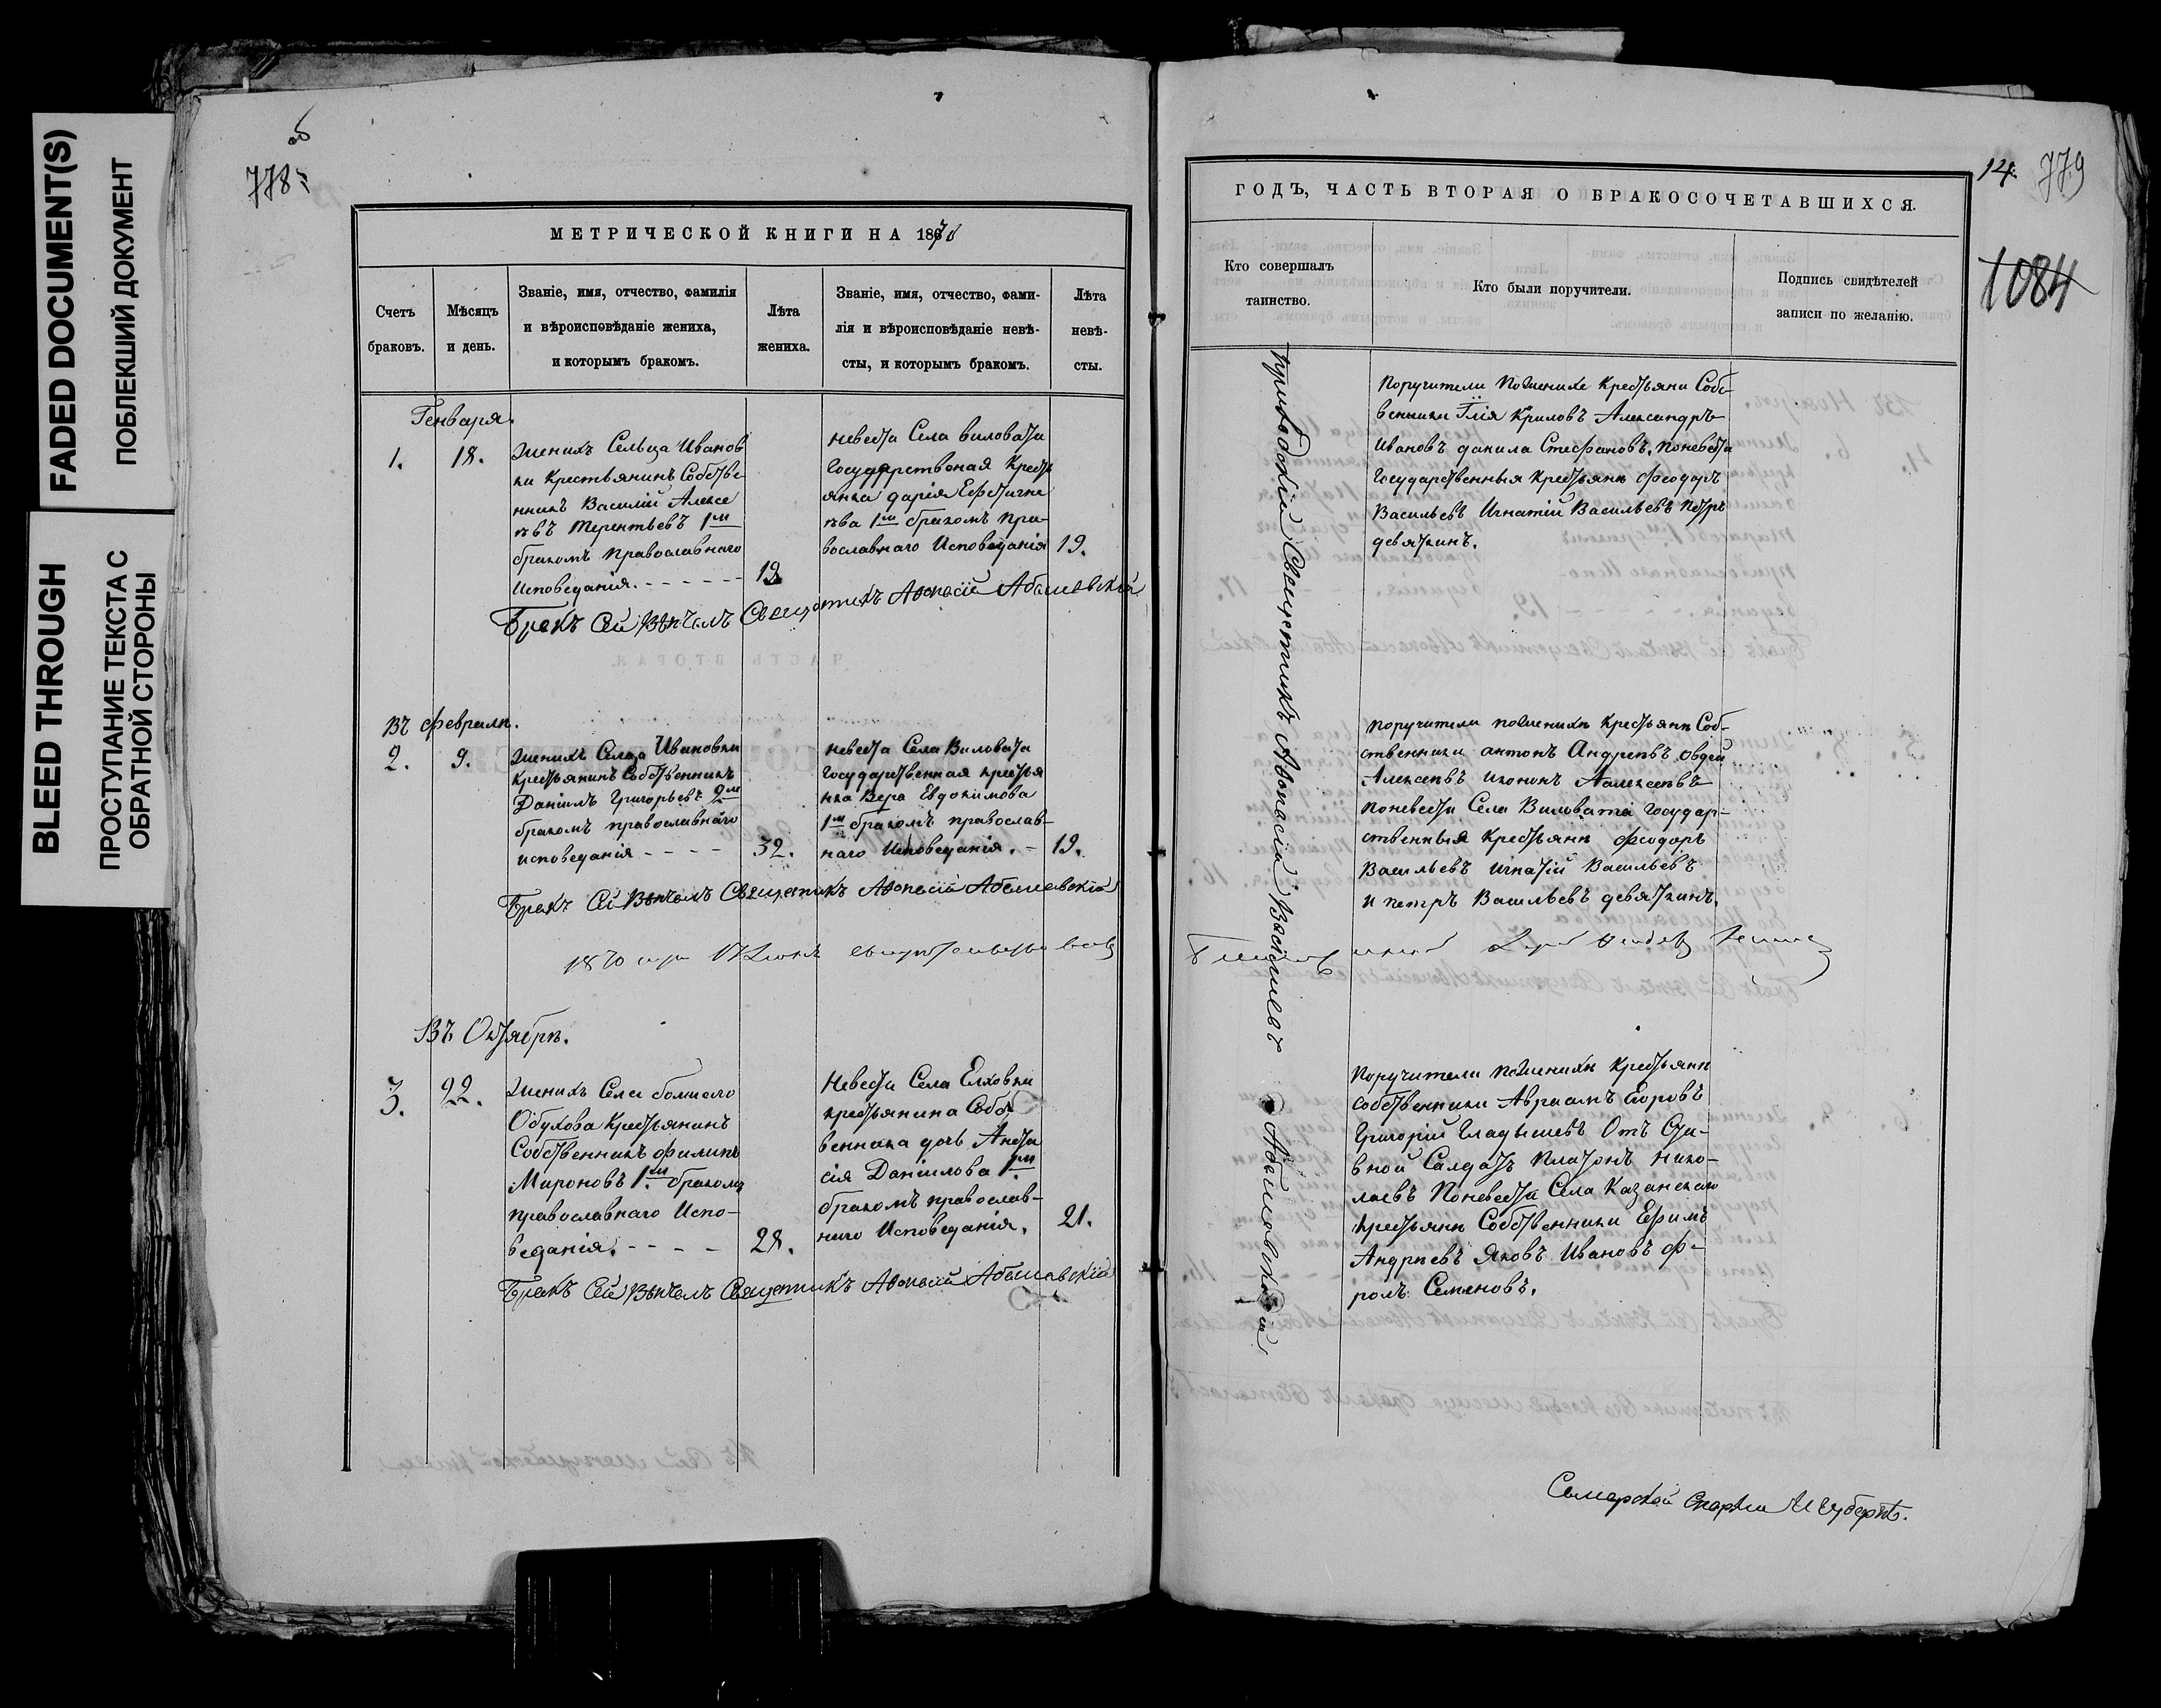 FADED DOCUMENT(S)
ПОБЛЕКШИЙ ДОКУМЕНТ
BLEED THROUGH
ПРОСТУПАНИЕ ТЕКСТА С
ОБРАТНОЙ СТОРОНЫ
об
778
МЕТРИЧЕСКОЙ КНИГИ НА 1870
Счетъ
браковъ.
Мѣсяцъ
и день.
Званіе, имя, отчество, фамилія
и вѣроисповѣданіе жениха,
и которымъ бракомъ.
Лѣта
жениха.
Званіе, имя, отчество, фами-
лія и вѣроисповѣданіе невѣ-
сты, и которымъ бракомъ.
Лѣта
невѣ-
сты.
Генваря.
1.
18.
Женихъ Сельца Иванов
ки Крестьянинъ Собстве
нникъ Василій Алексе
евъ Терентьевъ 1м
бракомъ православнаго
Исповеданія.
19
невеста Села виловата
Государственая Крестья
янка дарія Ефстигне
ева 1м бракомъ пра-
вославнаго Исповеданія
19.
Бракъ Сей Венчалъ Священникъ Афонасій Абашевскій
Въ феврале.
2.
9.
Женихъ Сельца Ивановки
крестьянинъ Собственникъ
Даніилъ Григорьевъ 2м
бракомъ православнаго
исповеданія
32.
невеста Села Виловата
Государственная крестья
нка Вера Евдокимова
1м бракомъ православ-
наго Исповеданія.
19.
Бракъ Сей Венчалъ Священникъ Афонасій Абашевскій
1870 года
Въ Октябре.
3.
22.
Женихъ Села болшого
Обухова Крестьянинъ
Собственникъ филипъ
Мироновъ 1м бракомъ
православнаго Испо-
веданія.
28.
Невеста Села Елховки
крестьянина Собст
венника дочь Анста
сія Даніилова 1м
бракомъ православ-
наго Исповеданія.
21.
Бракъ Сей Венчалъ Священникъ Афонасій Абашевскій
14. 779
1084
ГОДЪ, ЧАСТЬ ВТОРАЯ О БРАКОСОЧЕТАВШИХСЯ.
Кто совершалъ
таинство.
Кто были поручители.
Подпись свидѣтелей
записи по желанію.
приходскій Священникъ Афонасій Васильевъ Абашевскій
Поручители Поженихе крестьяни Собс-
венники Илія Криловъ Александръ
Ивановъ данила Стефановъ. Поневеста
Государственныя Крестьяне феодоръ
Васильевъ Игнатій Васильевъ Петръ
девяткинъ.
поручители пожениха крестьяне Соб-
ственники антонъ Андреевъ овдей
Алексеевъ Алексеевъ
Поневеста Села Виловата Государ-
ственныя Крестьяне феодоръ
Васильевъ Игнатій Васильевъ
и петръ Васильевъ девяткинъ.
Поручители пожениха крестьяне
Собственники Авраамъ Егоровъ
Григорій Гладышевъ Отъ Ста-
вной Салдатъ Платонъ Нико-
лаевъ Поневеста Села Казанскаго
крестьяне Собственники Ефимъ
Андреевъ Яковъ Ивановъ Фе-
ролъ Семеновъ.
Самарской Епархіи И Губерніи.